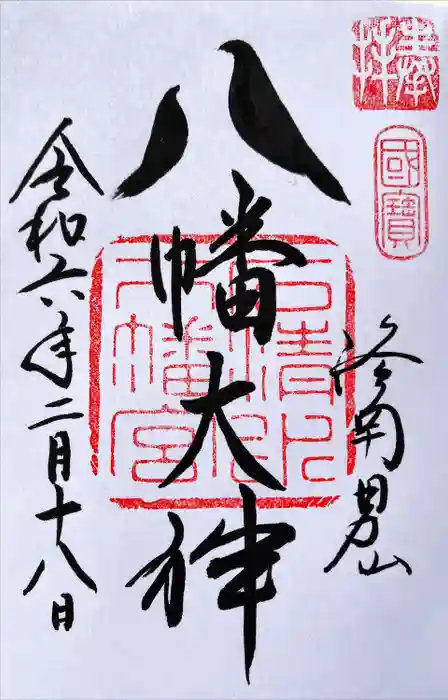 奉拝
國寶
洛南男山
八幡大神
石清水八幡宮
令和六年二月十八日